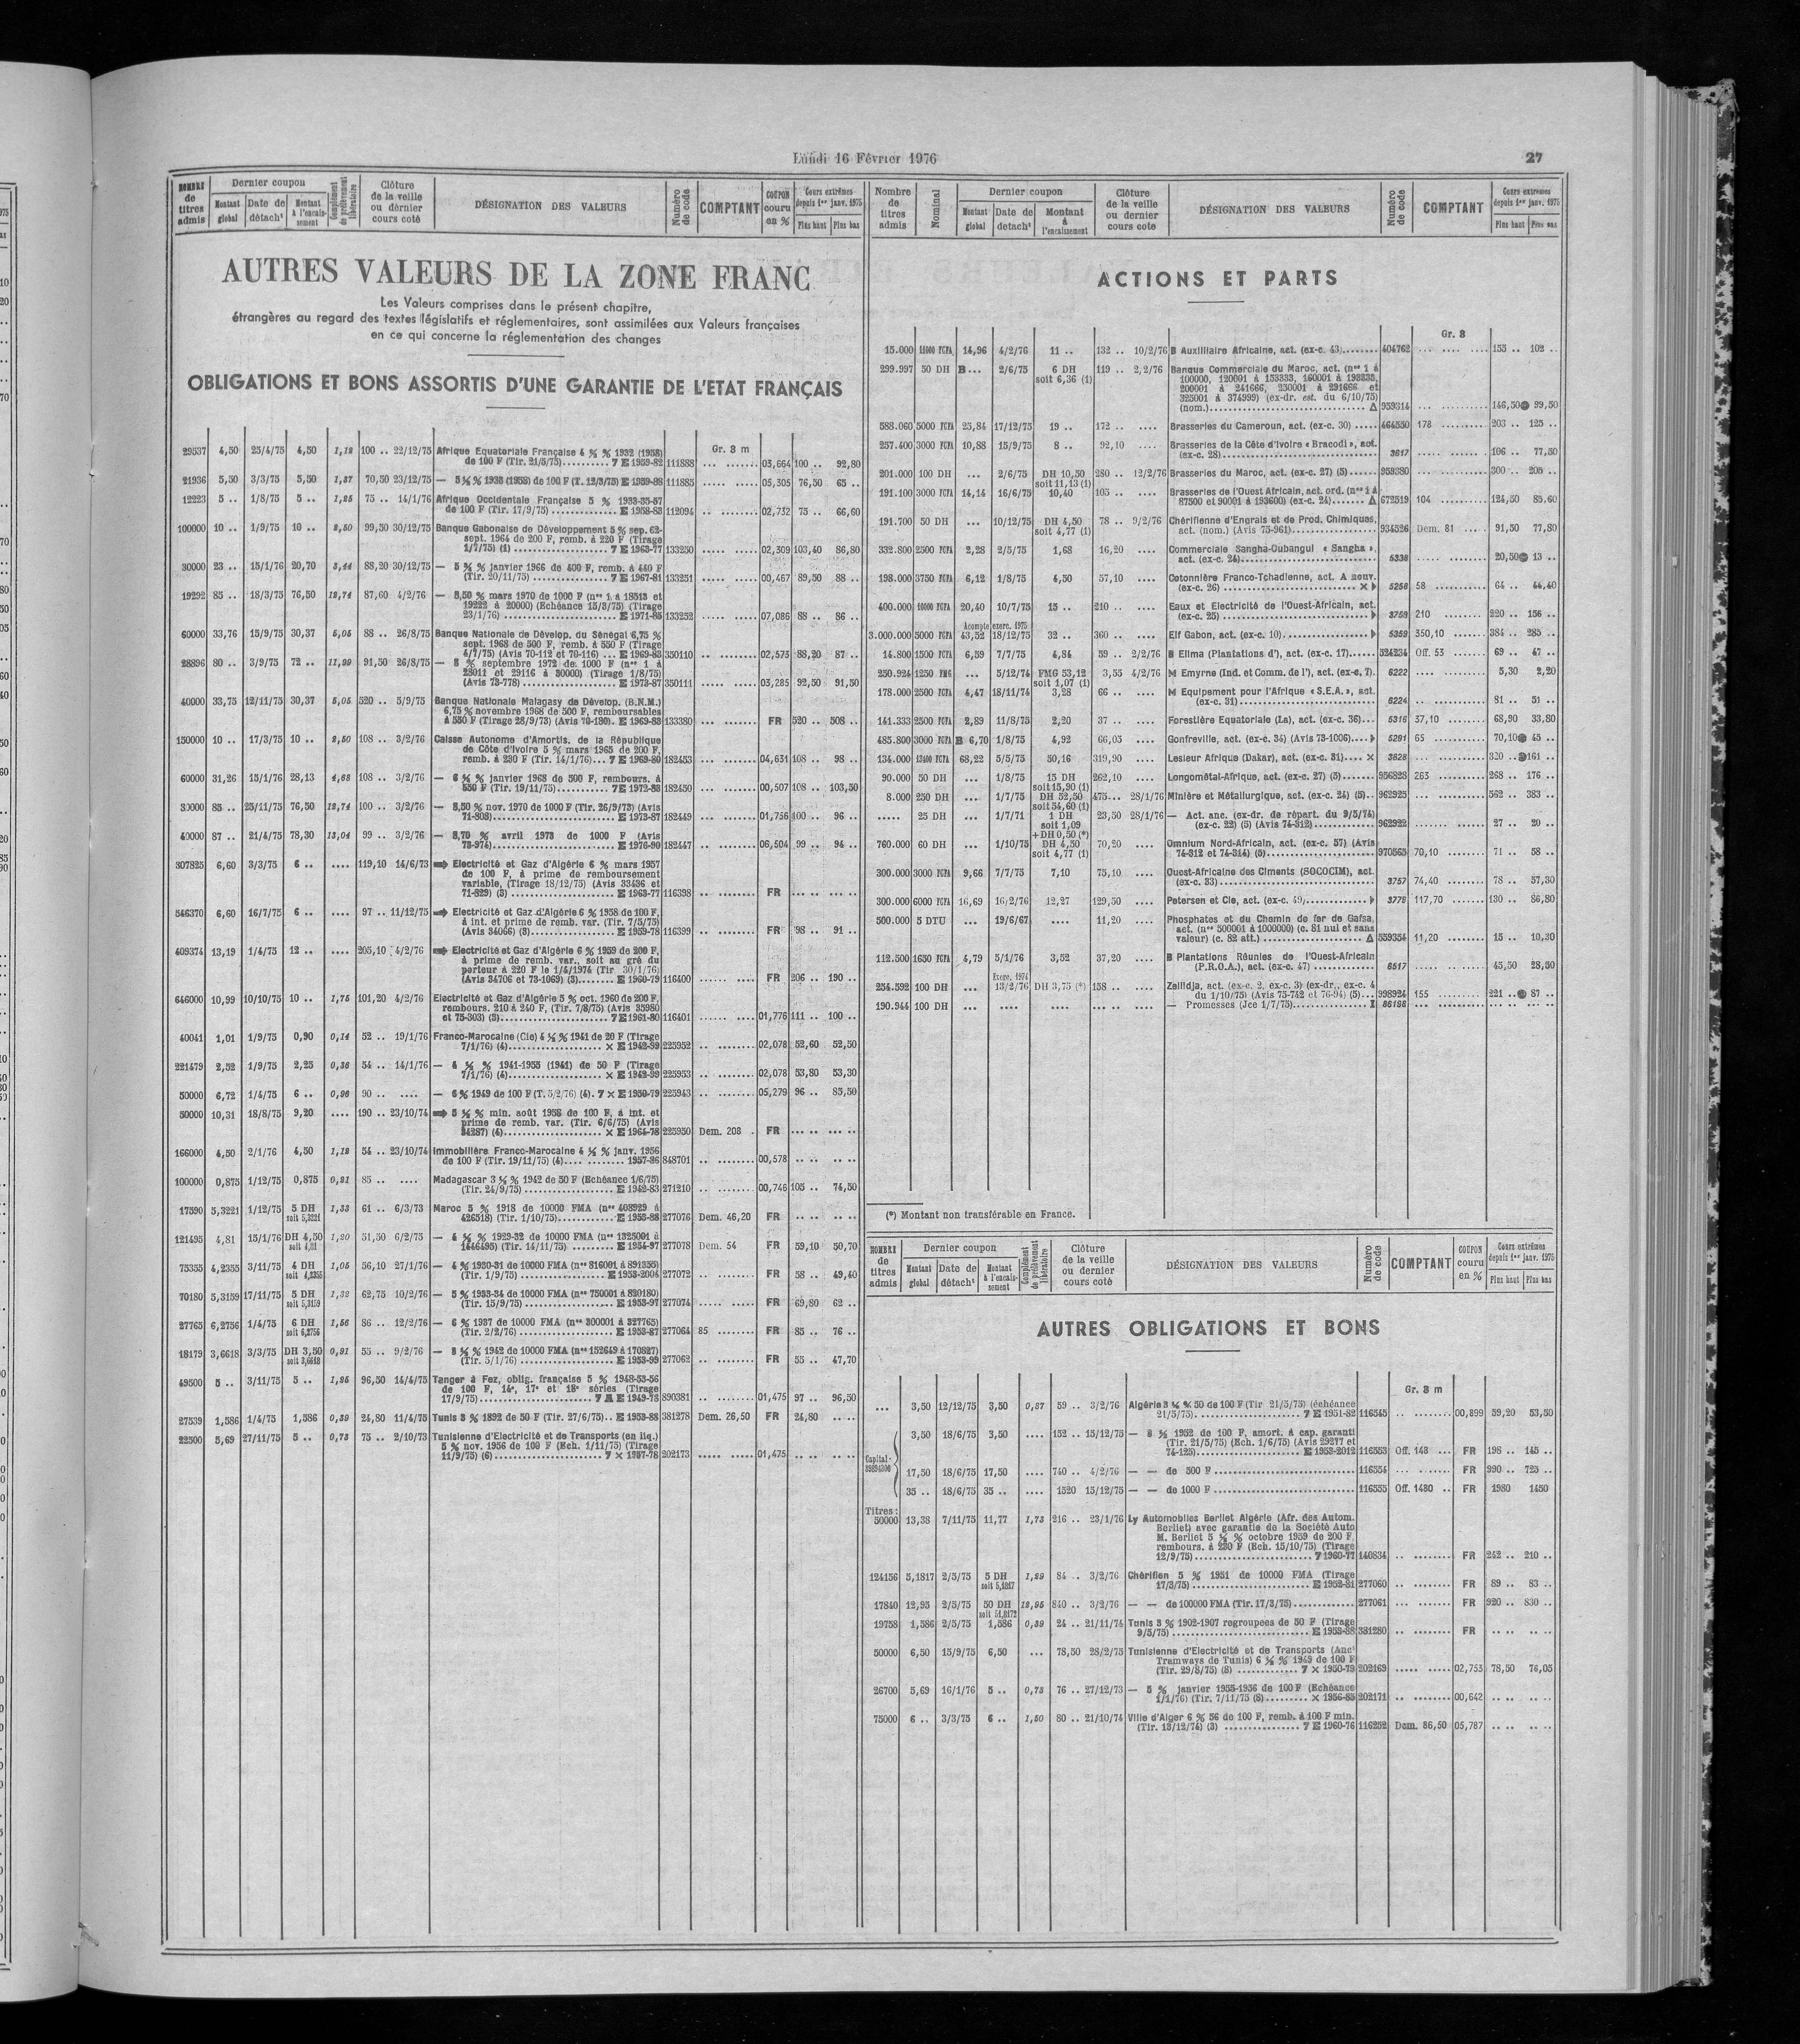 Lundi 16 Février 1976
27
NOMBRE de titres admis
Dernier coupon
Montant global
Date de détacht
Montant à l'encaissement
Complément de prélèvement libératoire
Clôture de la veille ou dernier cours coté
DÉSIGNATION DES VALEURS
Numéro de code
COMPTANT
COUPON couru en %
Cours extrêmes depuis 1er janv. 1975
Plus haut
Plus bas
AUTRES VALEURS DE LA ZONE FRANC
Les Valeurs comprises dans le présent chapitre,
étrangères au regard des textes législatifs et réglementaires, sont assimilées aux Valeurs françaises
en ce qui concerne la réglementation des changes
OBLIGATIONS ET BONS ASSORTIS D'UNE GARANTIE DE L'ETAT FRANÇAIS
Gr. 3 m
29537 4,50 25/4/75 4,50 1,18 100 .. 22/12/75 Afrique Equatoriale Française 4 ½ % 1932 (1958)
de 100 F (Tir. 21/5/75) 7 E 1959-82 111888 03,664 100 .. 92,80
21936 5,50 3/3/75 5,50 1,37 70,50 23/12/75 — 5 ½ % 1933 (1958) de 100 F (T. 12/3/75) E 1959-88 111885 05,305 76,50 65 ..
12223 5 .. 1/8/75 5 .. 1,25 75 .. 14/1/76 Afrique Occidentale Française 5 % 1933-35-57
de 100 F (Tir. 17/9/75) E 1958-83 112094 02,732 75 .. 66,60
100000 10 .. 1/9/75 10 .. 2,50 99,50 30/12/75 Banque Gabonaise de Développement 5 % sep. 62-
sept. 1964 de 200 F, remb. à 220 F (Tirage
1/7/75) (1) 7 E 1963-77 133250 02,309 103,40 86,80
30000 23 .. 15/1/76 20,70 88,20 30/12/75 — 5 ¾ % janvier 1966 de 400 F, remb. à 440 F
(Tir. 20/11/75) 7 E 1967-81 133251 00,467 89,50 88 ..
19292 85 .. 18/3/75 76,50 12,74 87,60 4/2/76 — 8,50 % mars 1970 de 1000 F (nos 1 à 18513 et
19222 à 20000) (Echéance 15/3/75) (Tirage
23/1/76) E 1971-85 133252 07,086 88 .. 86 ..
60000 33,76 15/9/75 30,37 5,05 88 .. 26/8/75 Banque Nationale de Dévelop. du Sénégal 6,75 %
sept. 1968 de 500 F, remb. à 550 F (Tirage
4/7/75) (Avis 70-112 et 70-116) E 1969-83 350110 02,573 88,20 87 ..
28896 80 .. 3/9/75 72 .. 11,99 91,50 26/8/75 — 8 % septembre 1972 de 1000 F (nos 1 à
28011 et 29116 à 30000) (Tirage 1/8/75)
(Avis 73-778) E 1973-87 350111 03,285 92,50 91,50
40000 33,75 12/11/75 30,37 5,05 520 .. 5/9/75 Banque Nationale Malagasy de Dévelop. (B.N.M.)
6,75 % novembre 1968 de 500 F, remboursables
à 550 F (Tirage 28/9/73) (Avis 70-180) E 1969-83 133380 FR 520 .. 508 ..
150000 10 .. 17/3/75 10 .. 2,50 108 .. 3/2/76 Caisse Autonome d'Amortis. de la République
de Côte d'Ivoire 5 % mars 1965 de 200 F,
remb. à 230 F (Tir. 14/1/76) 7 E 1969-80 182453 04,631 108 .. 98 ..
60000 31,26 15/1/76 28,13 4,68 108 .. 3/2/76 — 6 ¼ % janvier 1968 de 500 F, rembours. à
550 F (Tir. 19/11/75) 7 E 1972-88 182450 00,507 108 .. 103,50
30000 85 .. 25/11/75 76,50 12,74 100 .. 3/2/76 — 8,50 % nov. 1970 de 1000 F (Tir. 26/9/73) (Avis
71-808) E 1973-87 182449 01,756 100 .. 96 ..
40000 87 .. 21/4/75 78,30 13,04 99 .. 3/2/76 — 8,70 % avril 1973 de 1000 F (Avis
73-974) E 1976-90 182447 06,504 99 .. 94 ..
307825 6,60 3/3/75 6 .. .... 119,10 14/6/73 Electricité et Gaz d'Algérie 6 % mars 1957
de 100 F, à prime de remboursement
variable, (Tirage 18/12/75) (Avis 33436 et
71-829) (3) E 1963-77 116398 FR
546370 6,60 16/7/75 6 .. .... 97 .. 11/12/75 Electricité et Gaz d'Algérie 6 % 1958 de 100 F,
à int. et prime de remb. var. (Tir. 7/5/75)
(Avis 34066) (3) E 1959-78 116399 FR 98 .. 91 ..
409374 13,19 1/4/75 12 .. .... 205,10 4/2/76 Electricité et Gaz d'Algérie 6 % 1959 de 200 F,
à prime de remb. var., soit au gré du
porteur à 220 F le 1/4/1974 (Tir. 30/1/76)
(Avis 34706 et 73-1069) (3) E 1960-79 116400 FR 206 .. 190 ..
646000 10,99 10/10/75 10 .. 1,75 101,20 4/2/76 Electricité et Gaz d'Algérie 5 % oct. 1960 de 200 F,
rembours. 210 à 240 F, (Tir. 7/8/75) (Avis 35980
et 75-303) (3) 7 E 1961-80 116401 01,776 111 .. 100 ..
40041 1,01 1/9/75 0,90 0,14 52 .. 19/1/76 Franco-Marocaine (Cie) 4 ½ % 1941 de 20 F (Tirage
7/1/76) (4) × E 1942-99 225952 02,078 52,60 52,50
221479 2,52 1/9/75 2,25 0,36 54 .. 14/1/76 — 4 ½ % 1941-1955 (1941) de 50 F (Tirage
7/1/76) (4) × E 1942-99 225953 02,078 53,80 53,30
50000 6,72 1/4/75 6 .. 0,96 90 .. .... — 6 % 1949 de 100 F (T. 5/2/76) (4). 7 × E 1950-79 225943 05,279 96 .. 85,50
50000 10,31 18/8/75 9,20 .... 190 .. 23/10/74 5 ½ % min. août 1958 de 100 F, à int. et
prime de remb. var. (Tir. 6/6/75) (Avis
34287) (4) × E 1964-78 225950 Dem. 208 FR
166000 4,50 2/1/76 4,50 1,18 54 .. 23/10/74 Immobilière Franco-Marocaine 4 ½ % janv. 1956
de 100 F (Tir. 19/11/75) (4) 1957-86 848701 00,578
100000 0,875 1/12/75 0,875 0,21 85 .. .... Madagascar 3 ½ % 1942 de 50 F (Echéance 1/6/75)
(Tir. 24/9/75) E 1942-83 271210 00,746 105 .. 74,50
17590 5,3221 1/12/75 5 DH soit 5,3221 1,33 61 .. 6/3/73 Maroc 5 % 1918 de 10000 FMA (nos 408929 à
426518) (Tir. 1/10/75) E 1953-88 277076 Dem. 46,20 FR
121495 4,81 15/1/76 DH 4,50 soit 4,81 1,20 51,50 6/2/75 — 4 ½ % 1929-32 de 10000 FMA (nos 1325001 à
1446495) (Tir. 14/11/75) E 1954-97 277078 Dem. 54 FR 59,10 50,70
75355 4,2355 3/11/75 4 DH soit 4,2355 1,05 56,10 27/1/76 — 4 % 1930-31 de 10000 FMA (nos 816001 à 891355)
(Tir. 1/9/75) E 1953-2004 277072 FR 58 .. 49,40
70180 5,3159 17/11/75 5 DH soit 5,3159 1,32 62,75 10/2/76 — 5 % 1933-34 de 10000 FMA (nos 750001 à 820180)
(Tir. 15/9/75) E 1953-97 277074 FR 69,80 62 ..
27765 6,2756 1/4/75 6 DH soit 6,2756 1,56 86 .. 12/2/76 — 6 % 1937 de 10000 FMA (nos 300001 à 327765)
(Tir. 2/2/76) E 1953-87 277064 85 FR 85 .. 76 ..
18179 3,6618 3/3/75 DH 3,50 soit 3,6618 0,91 55 .. 9/2/76 — 3 ½ % 1942 de 10000 FMA (nos 152649 à 170827)
(Tir. 5/1/76) E 1953-99 277062 FR 55 .. 47,70
49500 5 .. 3/11/75 5 .. 1,25 96,50 14/4/75 Tanger à Fez, oblig. française 5 % 1948-53-56
de 100 F, 14e, 17e et 18e séries (Tirage
17/9/75) 7 E 1949-78 890381 01,475 97 .. 96,50
27539 1,586 1/4/75 1,586 0,39 24,80 11/4/75 Tunis 3 % 1892 de 50 F (Tir. 27/6/75) E 1953-88 381278 Dem. 26,50 FR 24,80
22500 5,69 27/11/75 5 .. 0,73 75 .. 2/10/73 Tunisienne d'Electricité et de Transports (en liq.)
5 % nov. 1956 de 100 F (Ech. 1/11/75) (Tirage
11/9/75) (6) 7 × 1957-78 202173 01,475
Nombre de titres admis
Nominal
Dernier coupon
Montant global
Date de detacht
Montant à l'encaissement
Clôture de la veille ou dernier cours cote
DÉSIGNATION DES VALEURS
Numéro de code
COMPTANT
Cours extrêmes depuis 1er janv. 1975
Plus haut
Plus bas
ACTIONS ET PARTS
Gr. 3
15.000 11000 FCFA 14,96 4/2/76 11 .. 132 .. 10/2/76 B Auxiliaire Africaine, act. (ex-c. 43) 404762 155 .. 102 ..
299.997 50 DH B... 2/6/75 6 DH soit 6,36 (1) 119 .. 2/2/76 Banque Commerciale du Maroc, act. (nos 1 à
100000, 120001 à 153333, 160001 à 193335,
200001 à 241666, 250001 à 291666 et
325001 à 374999) (ex-dr. est. du 6/10/75)
(nom.) Δ 959314 146,50 99,50
588.060 5000 FCFA 25,84 17/12/75 19 .. 172 .. .... Brasseries du Cameroun, act. (ex-c. 30) 464550 178 203 .. 125 ..
257.400 3000 FCFA 10,88 15/9/75 8 .. 92,10 .... Brasseries de la Côte d'Ivoire « Bracodi », act.
(ex-c. 28) 3617 106 .. 77,50
201.000 100 DH ... 2/6/75 DH 10,50 soit 11,13 (1) 280 .. 12/2/76 Brasseries du Maroc, act. (ex-c. 27) (5) 959380 300 .. 205 ..
191.100 3000 FCFA 14,14 16/6/75 10,40 105 .. .... Brasseries de l'Ouest Africain, act. ord. (nos 1 à
87500 et 90001 à 193600) (ex-c. 24) Δ 672519 104 124,50 85,60
191.700 50 DH ... 10/12/75 DH 4,50 soit 4,77 (1) 78 .. 9/2/76 Chérifienne d'Engrais et de Prod. Chimiques,
act. (nom.) (Avis 75-961) 934526 Dem. 81 91,50 77,80
332.800 2500 FCFA 2,28 2/5/75 1,68 16,20 .... Commerciale Sangha-Oubangui « Sangha »,
act. (ex-c. 24) 5338 20,50 13 ..
198.000 3750 FCFA 6,12 1/8/75 4,50 57,10 .... Cotonnière Franco-Tchadienne, act. A nouv.
(ex-c. 26) × 5256 58 64 .. 44,40
400.000 10000 FCFA 20,40 10/7/75 15 .. 210 .. .... Eaux et Electricité de l'Ouest-Africain, act.
(ex-c. 25) 3759 210 220 .. 156 ..
Acompte exerc. 1975
3.000.000 5000 FCFA 43,52 18/12/75 32 .. 360 .. .... Elf Gabon, act. (ex-c. 10) 5359 350,10 384 .. 285 ..
14.800 1500 FCFA 6,59 7/7/75 4,84 59 .. 2/2/76 B Elima (Plantations d'), act. (ex-c. 17) 524234 Off. 53 69 .. 47 ..
250.924 1250 FMG ... 5/12/74 FMG 53,12 soit 1,07 (1) 3,55 4/2/76 M Emyrne (Ind. et Comm. de l'), act. (ex-c. 7) 6222 5,30 2,20
178.000 2500 FCFA 4,47 18/11/74 3,28 66 .. .... M Equipement pour l'Afrique « S.E.A. », act.
(ex-c. 31) 6224 81 .. 51 ..
141.333 2500 FCFA 2,89 11/8/75 2,20 37 .. .... Forestière Equatoriale (La), act. (ex-c. 36) 5316 37,10 68,90 33,80
485.800 3000 FCFA B 6,70 1/8/75 4,92 66,05 .... Gonfreville, act. (ex-c. 34) (Avis 73-1006) 5291 65 70,10 45 ..
134.000 13400 FCFA 68,22 5/5/75 50,16 319,90 .... Lesieur Afrique (Dakar), act. (ex-c. 31) × 3828 320 .. 161 ..
90.000 50 DH ... 1/8/75 15 DH soit 15,90 (1) 262,10 .... Longométal-Afrique, act. (ex-c. 27) (5) 956828 263 268 .. 176 ..
8.000 250 DH ... 1/7/75 DH 52,50 soit 54,60 (1) 475... 28/1/76 Minière et Métallurgique, act. (ex-c. 24) (5) 962925 562 .. 383 ..
..... 25 DH ... 1/7/71 1 DH soit 1,09 + DH 0,50 (*) 23,50 28/1/76 — Act. anc. (ex-dr. de répart. du 9/5/74)
(ex-c. 22) (5) (Avis 74-312) 962922 27 .. 20 ..
760.000 60 DH ... 1/10/75 DH 4,50 soit 4,77 (1) 70,20 .... Omnium Nord-Africain, act. (ex-c. 57) (Avis
74-312 et 74-314) (5) 970565 70,10 71 .. 58 ..
300.000 3000 FCFA 9,66 7/7/75 7,10 75,10 .... Ouest-Africaine des Ciments (SOCOCIM), act.
(ex-c. 33) 3757 74,40 78 .. 57,30
300.000 6000 FCFA 16,69 16/2/76 12,27 129,50 .... Petersen et Cie, act. (ex-c. 49) 3779 117,70 130 .. 86,80
500.000 5 DTU ... 19/6/67 .... 11,20 .... Phosphates et du Chemin de fer de Gafsa,
act. (nos 500001 à 1000000) (c. 81 nul et sans
valeur) (c. 82 att.) Δ 559354 11,20 15 .. 10,30
112.500 1650 FCFA 4,79 5/1/76 3,52 37,20 .... B Plantations Réunies de l'Ouest-Africain
(P.R.O.A.), act. (ex-c. 47) 6517 45,50 28,50
Exerc. 1974
254.592 100 DH ... 13/2/76 DH 3,75 (*) 158 .. .... Zellidja, act. (ex-c. 2, ex-c. 3) (ex-dr., ex-c. 4
du 1/10/75) (Avis 75-742 et 76-94) (5) 998924 155 221 .. 87 ..
190.944 100 DH ... .... .... ... .. .... — Promesses (Jce 1/7/75) I 86198
(*) Montant non transférable en France.
NOMBRE de titres admis
Dernier coupon
Montant global
Date de détacht
Montant à l'encaissement
Complément de prélèvement libératoire
Clôture de la veille ou dernier cours coté
DÉSIGNATION DES VALEURS
Numéro de code
COMPTANT
COUPON couru en %
Cours extrêmes depuis 1er janv. 1975
Plus haut
Plus bas
AUTRES OBLIGATIONS ET BONS
Gr. 3 m
... 3,50 12/12/75 3,50 0,87 59 .. 3/2/76 Algérie 3 ½ % 50 de 100 F (Tir. 21/5/75) (échéance
21/5/75) 7 E 1951-82 116545 00,899 59,20 53,50
3,50 18/6/75 3,50 .... 152 .. 15/12/75 — 3 ½ 1952 de 100 F, amort. à cap. garanti
(Tir. 21/5/75) (Ech. 1/6/75) (Avis 29277 et
74-125) E 1953-2012 116553 Off. 148 FR 198 .. 145 ..
Capital :
17,50 18/6/75 17,50 .... 740 .. 4/2/76 — — de 500 F 116554 FR 990 .. 725 ..
35 .. 18/6/75 35 .. .... 1520 15/12/75 — — de 1000 F 116555 Off. 1480 .. FR 1980 1450
Titres :
50000 13,38 7/11/75 11,77 1,73 216 .. 23/1/76 Ly Automobiles Berliet Algérie (Afr. des Autom.
Berliet) avec garantie de la Société Auto
M. Berliet 5 ½ % octobre 1959 de 200 F,
rembours. à 230 F (Ech. 15/10/75) (Tirage
12/9/75) 7 1960-77 140834 FR 242 .. 210 ..
124156 5,1817 2/5/75 5 DH soit 5,1817 1,29 84 .. 3/2/76 Chérifien 5 % 1951 de 10000 FMA (Tirage
17/3/75) E 1952-81 277060 FR 89 .. 83 ..
17840 12,95 2/5/75 50 DH soit 51,8172 12,95 840 .. 3/2/76 — — de 100000 FMA (Tir. 17/3/75) 277061 FR 920 .. 830 ..
19758 1,586 2/5/75 1,586 0,39 24 .. 21/11/74 Tunis 3 % 1902-1907 regroupées de 50 F (Tirage
9/5/75) E 1953-88 381280 FR
50000 6,50 15/9/75 6,50 ... 78,50 28/2/75 Tunisienne d'Electricité et de Transports (Anct
Tramways de Tunis) 6 ½ % 1949 de 100 F
(Tir. 29/8/75) (8) 7 × 1950-79 202169 02,753 78,50 76,05
26700 5,69 16/1/76 5 .. 0,73 76 .. 27/12/73 — 5 % janvier 1955-1956 de 100 F (Echéance
1/1/76) (Tir. 7/11/75 (8) × 1956-85 202171 00,642
75000 6 .. 3/3/75 6 .. 1,50 80 .. 21/10/74 Ville d'Alger 6 % 56 de 100 F, remb. à 100 F min.
(Tir. 13/12/74) (3) 7 E 1960-76 116252 Dem. 86,50 05,787